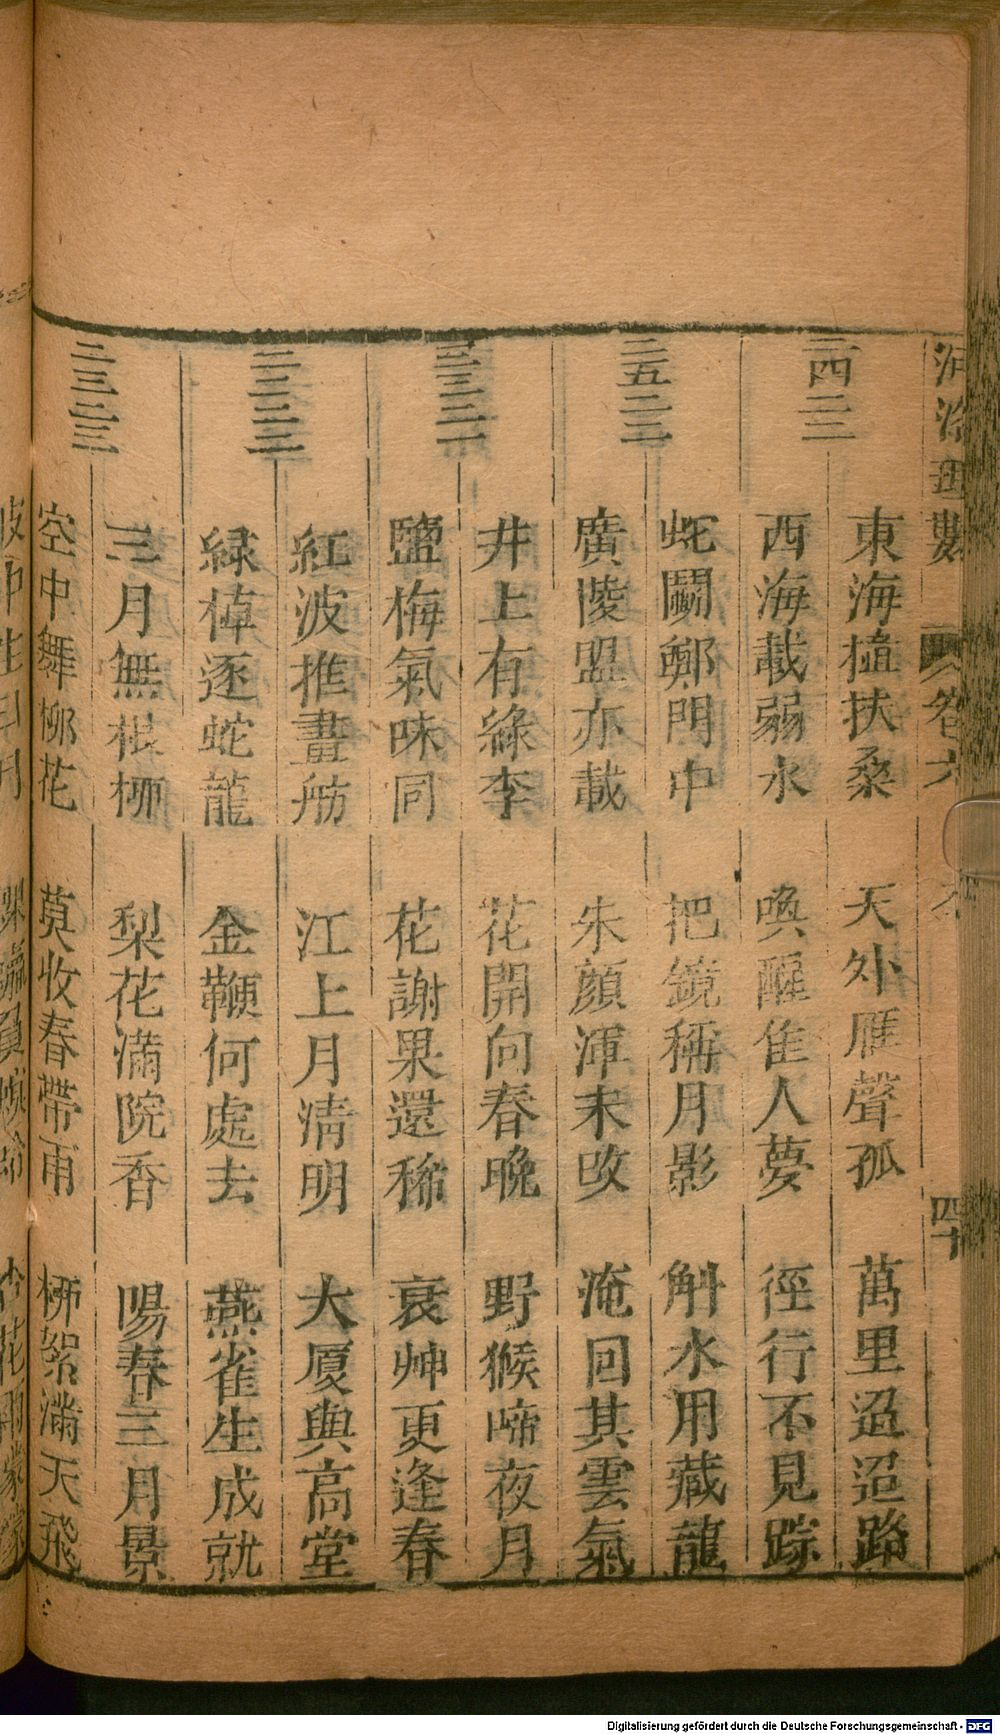 母數 卷六 四十
東海植扶桑 天外雁聲孤 萬里迢迢路
西海載弱水 喚醒隹人夢 徑行不見踪
二五二二
蛇鬭鄭門中 把鏡稱月影 斛水用藏龍
廣陵盟亦載 朱顔渾未改 淹回其雲氣
井上有綠李 花開向春晚 野猴啼夜月
鹽梅氣味同 花謝果還稀 衰艸更逢春
紅波推畫舫 江上月清明 大厦與高堂
緑棹逐蛇龍 金鞭何處去 燕雀生成就
三月無根柳 梨花滿院香 陽春三月景
空中舞柳花 莫收春帶雨 柳絮滿天飛
Digitalisierung gefördert durch die Deutsche Forschungsgemeinschaft - DFG